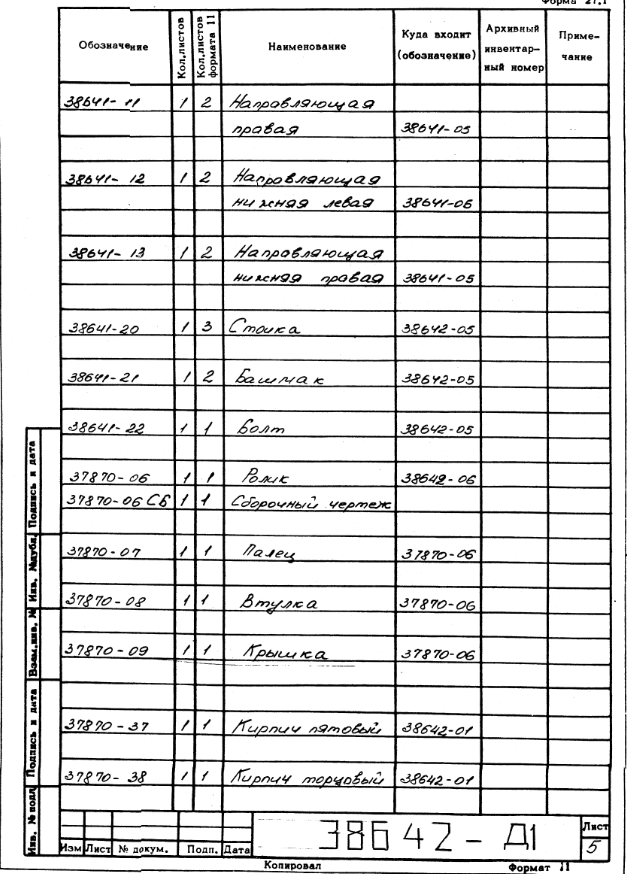 Форма 27.1
Обозначение
Кол.листов
Кол.листов формата 11
Наименование
Куда входит (обозначение)
Архивный инвентар-ный номер
Приме-чание
38641-11 1 2 Направляющая
правая 38641-05
38641-12 1 2 Направляющая
нижняя левая 38641-06
38641-13 1 2 Направляющая
нижняя правая 38641-05
38641-20 1 3 Стойка 38642-05
38641-21 1 2 Башмак 38642-05
38641-22 1 1 Болт 38642-05
37870-06 1 1 Ролик 38642-06
37870-06 СБ 1 1 Сборочный чертеж
37870-07 1 1 Палец 37870-06
37870-08 1 1 Втулка 37870-06
37870-09 1 1 Крышка 37870-06
37870-37 1 1 Кирпич пятовый 38642-01
37870-38 1 1 Кирпич торцовый 38642-01
Подпись и дата
Инв. №дубл.
Взам.инв. №
Подпись и дата
Инв. № подл
Изм Лист № докум. Подп. Дата
38642-Д1
Лист
5
Копировал
Формат 11